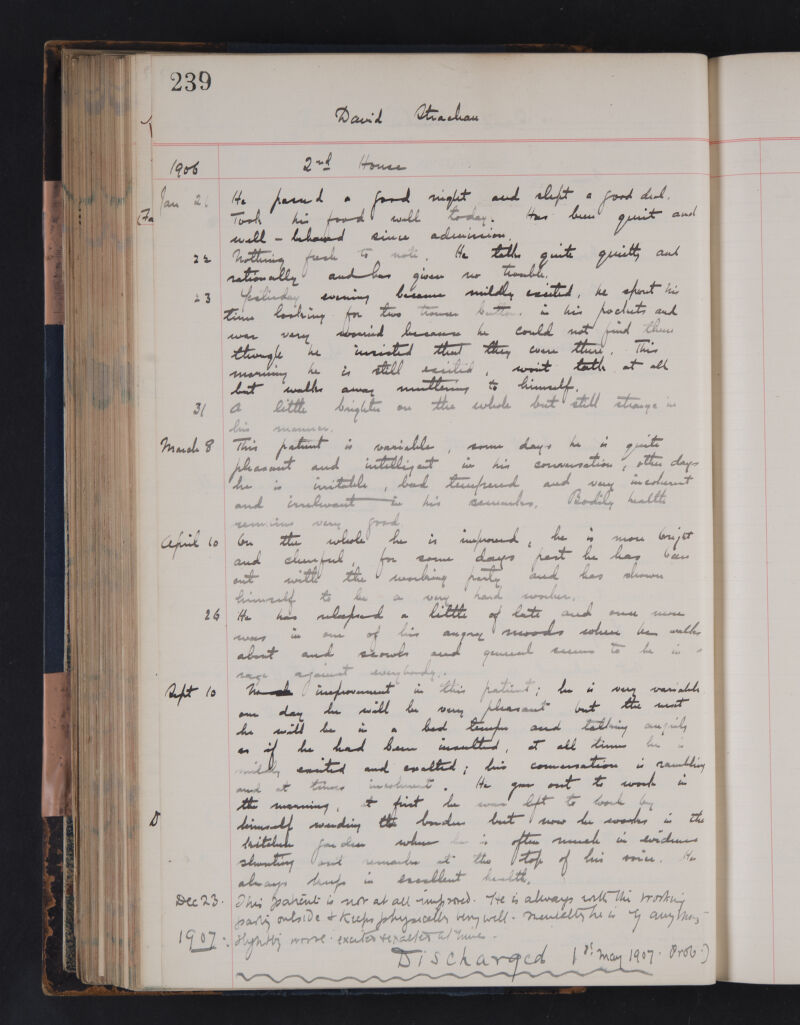 239
David Strachan
1906 2nd House
Jan 21 He passed a good night and slept a good deal.
Took his food well today. Has been quiet and
well-behaved since admission.
22 Nothing fresh to note. He talks quite quietly and
rationally and has given no trouble.
23 Yesterday evening became mildly excited, he spent his
time looking for two trouser buttons in his pockets and
was very worried because he could not find them
though he insisted that they were there. This
morning he is still excited, won't talk at all
but walks away muttering to himself.
31 A little brighter on the whole but still strange in
his manner.
March 8 This patient is variable, some days he is quite
pleasant and intelligent in his conversation, other days
he is irritable, bad tempered and very incoherent
and irrelevant in his remarks. Bodily health
remains very good.
April 10 On the whole he is improved, he is more bright
and cheerful, for some days past he has been
out with the working party and has shown
himself to be a very hard worker.
26 He has relapsed a little of late and once more
was in one of his angry moods when he walks
about and scowls and general seems to be in a
rage against everybody.
Sept 10 No improvement in this patient; he is very variable
one day he will be very pleasant but the next
he will be in a bad temper and talking angrily
as if he had been insulted, at all times he is
mildly excited and exalted; his conversation is rambling
and at times incoherent. He goes out to work in
the morning, at first he was left to work by
himself weeding the borders but now he works in the
kitchen garden where he is often much in evidence
shouting out remarks at the top of his voice. He
always keeps in excellent health.
Dec 23. This patient is not at all improved. He is always with the working
party outside & keeps physically very well. Mentally he is if anything
1907. slightly worse. excited & exalted at times.
Discharged 1st May 1907. Prob.)